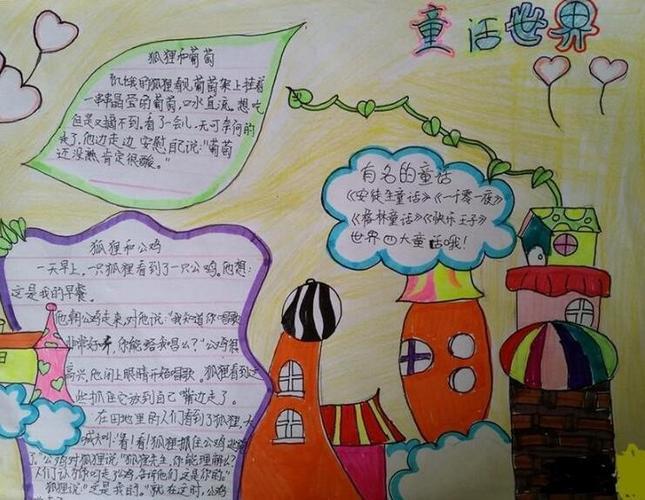 童话世界
狐狸和葡萄
饥饿的狐狸看见葡萄架上挂着
一串串晶莹的葡萄,口水直流。想吃
但是又摘不到。看了一会儿,无可奈何的
走了,他边走边安慰自己说:"葡萄
还没熟,肯定很酸。"
有名的童话
《安徒生童话》《一千零一夜》
《格林童话》《快乐王子》
世界四大童话哦!
狐狸和公鸡
一天早上,一只狐狸看到了一只公鸡。他想:
这是我的早餐。
他朝公鸡走来,对他说:"我知道你唱歌
非常好听,你能给我唱么?"公鸡很
高兴,他闭上眼睛开始唱歌。狐狸看到这
些抓住它放到自己嘴边走了。
在田地里的人们看到了狐狸,大
喊大叫:"看!看!狐狸抓住公鸡逃
了。"公鸡对狐狸说:"狐狸先生,你能理解么?
人们认为你叼走公鸡,告诉他们这是你的"
狐狸说:"这是我的。"就在这时,公鸡